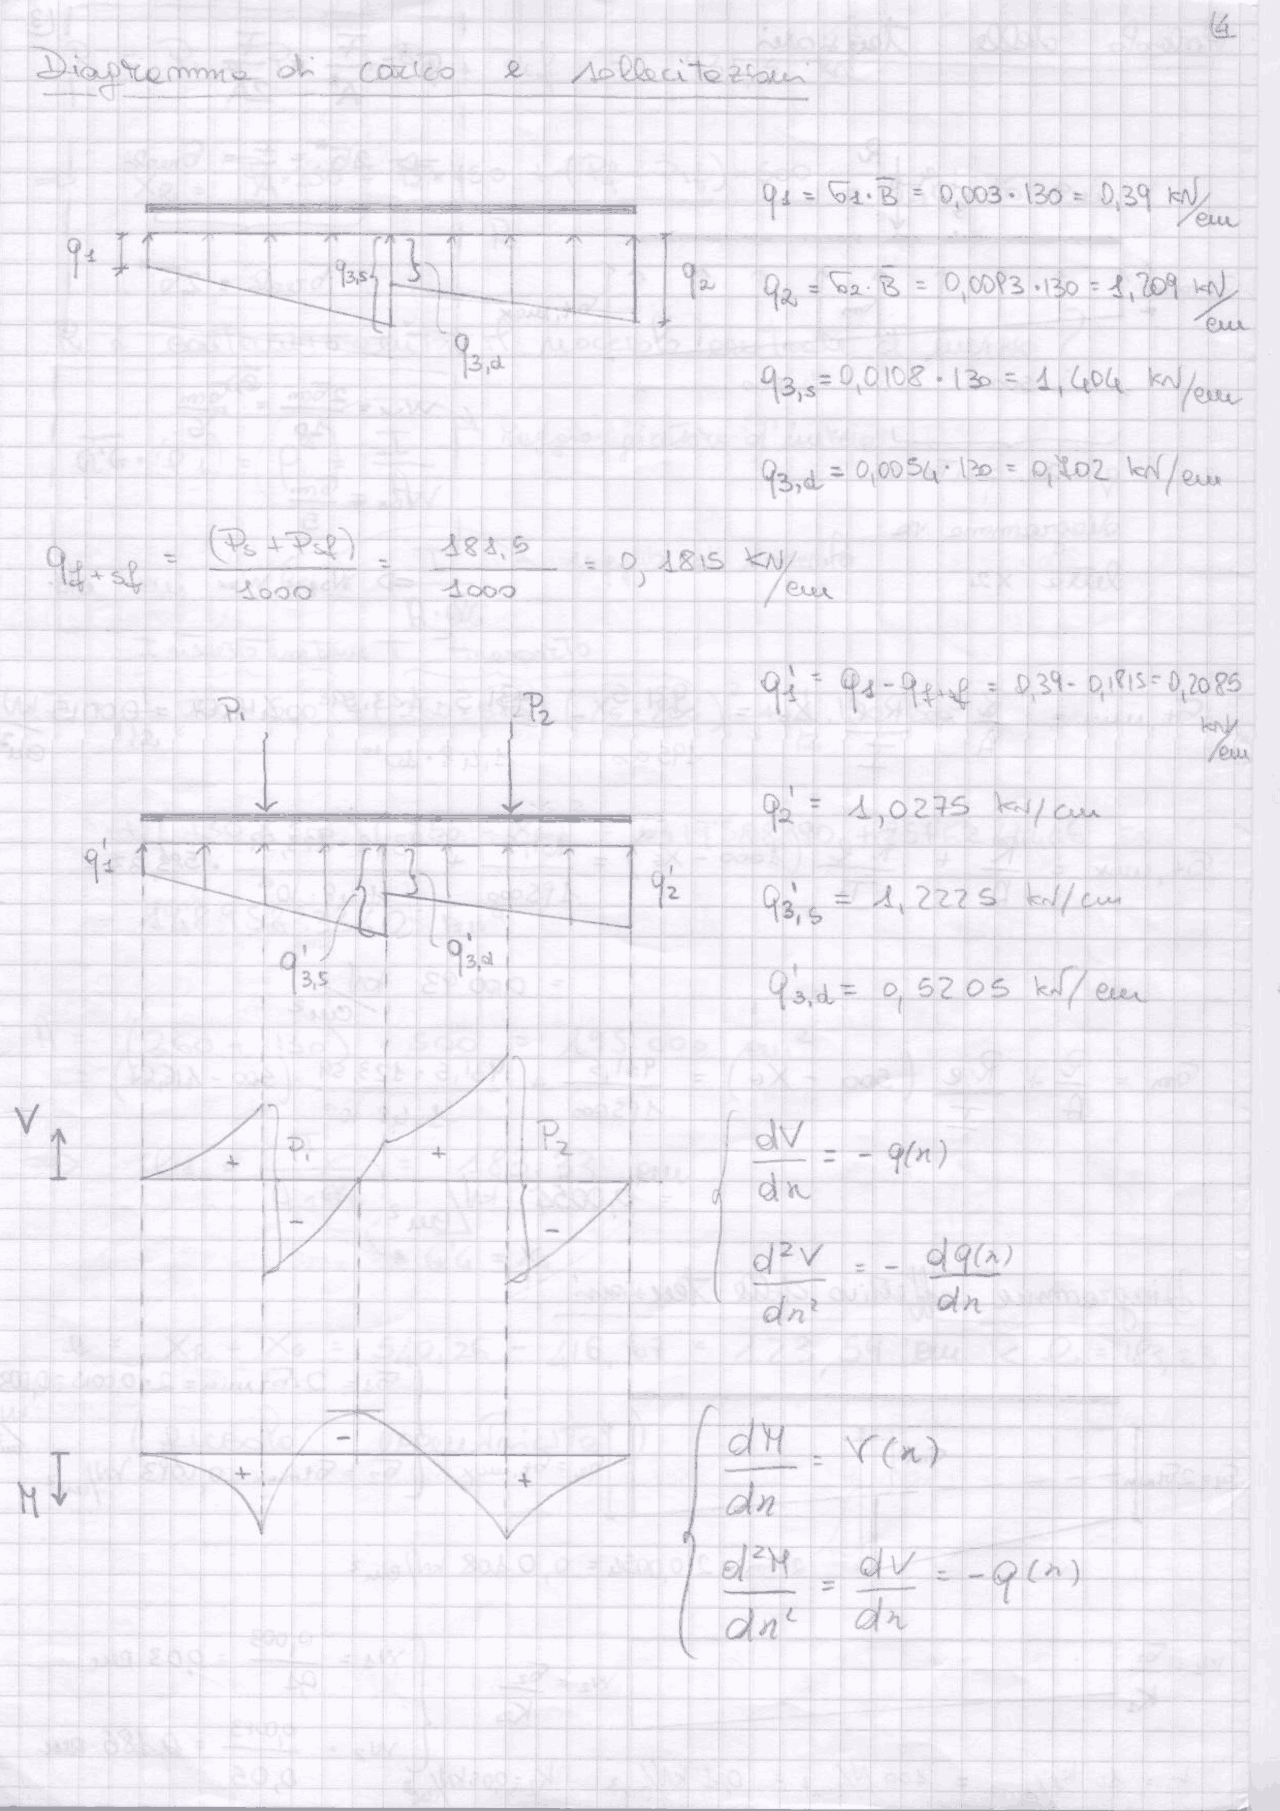 14
Diagramma di carico e sollecitazioni
q1 = σ1 · B̄ = 0,003 · 130 = 0,39 kN/cm
q1 q3,s q3,d q2
q2 = σ2 · B̄ = 0,0093 · 130 = 1,209 kN/cm
q3,s = 0,0108 · 130 = 1,404 kN/cm
q3,d = 0,0054 · 130 = 0,702 kN/cm
qf+sf = (Ps + Psf) / 1000 = 181,5 / 1000 = 0,1815 kN/cm
q1' = q1 - qf+sf = 0,39 - 0,1815 = 0,2085 kN/cm
P1 P2
q2' = 1,0275 kN/cm
q1' q2'
q3,s' = 1,2225 kN/cm
q3,s' q3,d'
q3,d' = 0,5205 kN/cm
V + P1 - + P2 -
dV/dx = - q(x)
d²V/dx² = - dq(x)/dx
M + - +
dM/dx = V(x)
d²M/dx² = dV/dx = - q(x)